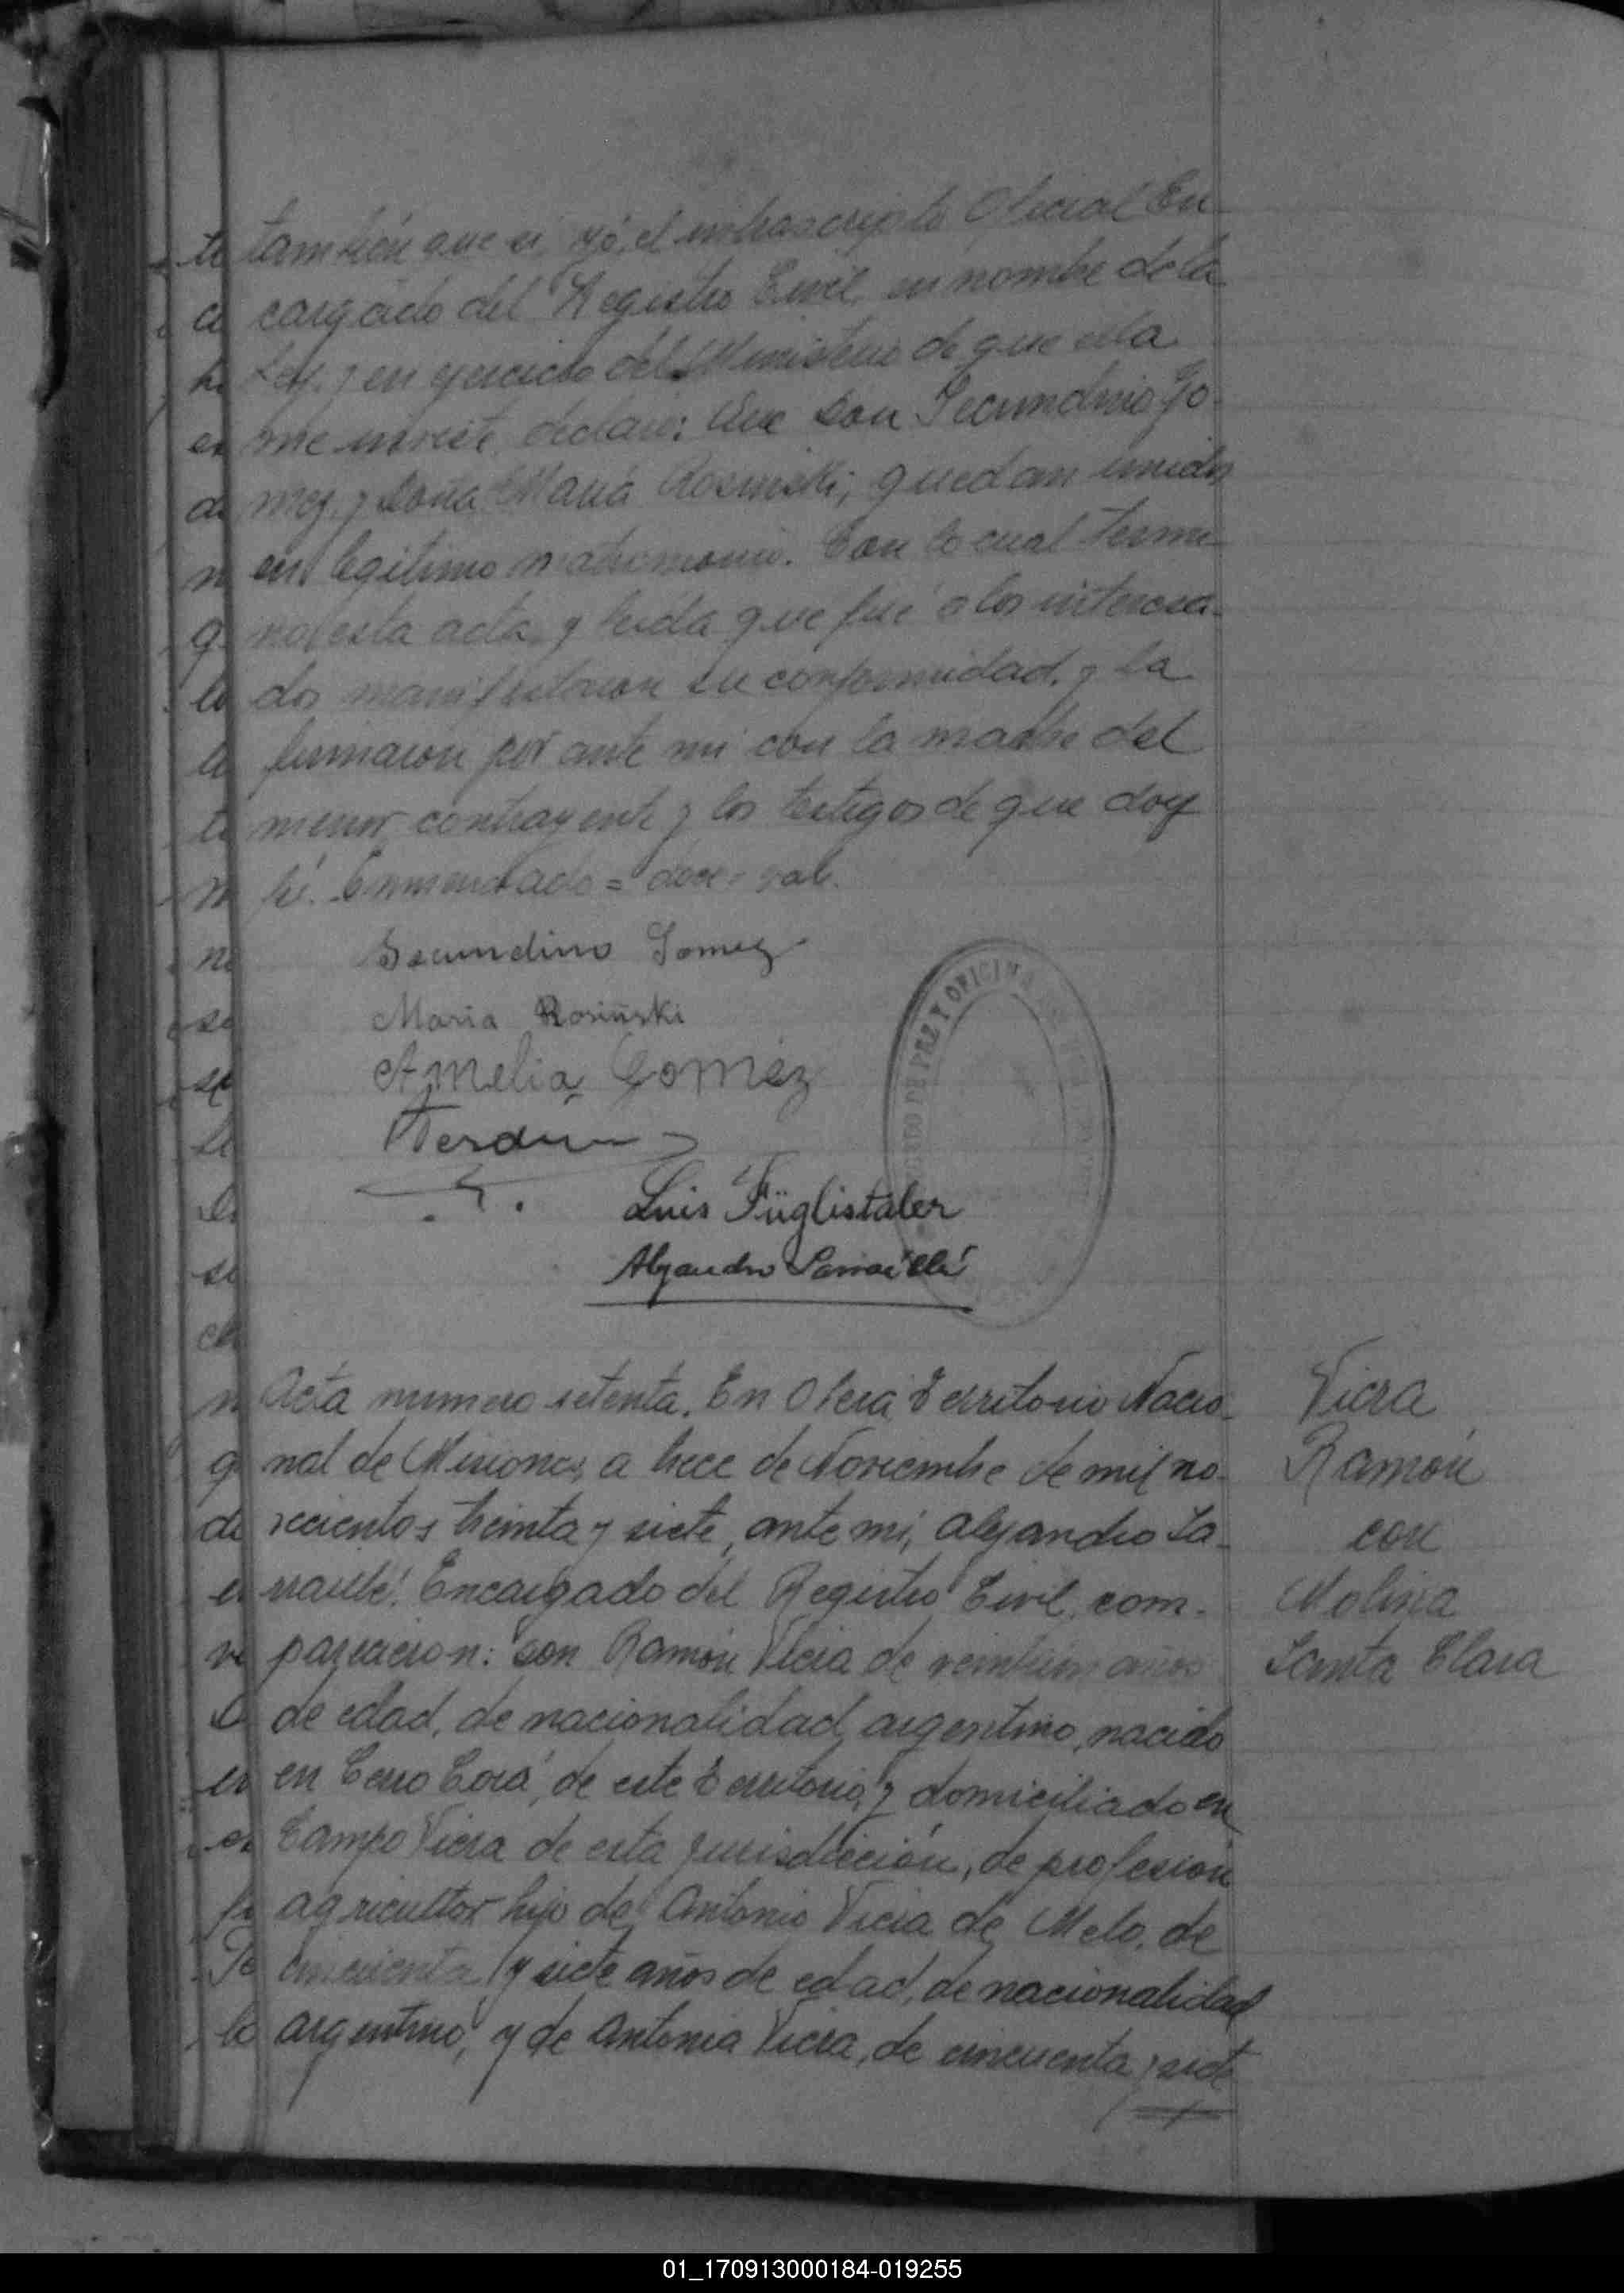 también que si, yó, el infrascripto Oficial En
cargado del Registro Civil, en nombre de la
Ley, y en ejercicio del Ministerio de que ella
me inviste, declaro: Que Don Secundino Go-
mez, y Doña Maria Rosinski; quedan unidos
en legítimo matrimonio. Con lo cual termi-
nó esta acta, y leida que fué a los interesa-
dos manifestaron su conformidad, y la
firmaron por ante mi con la madre del
menor contrayente y los testigos de que doy
fé. Enmendado = doce = vale.
Secundino Gomez
Maria Rosiński
Amelia Gomez
Luis Füglistaler
Alejandro Larraillé
JUZGADO DE PAZ Y OFICINA
Acta numero setenta. En Oberá Territorio Nacio-
nal de Misiones, a trece de Noviembre de mil no-
vecientos treinta y siete, ante mi, Alejandro La-
rraillé, Encargado del Registro Civil, com-
parecieron: Don Ramón Viera de veintiun años
de edad, de nacionalidad argentino, nacido
en Cerro Corá, de este Territorio, y domiciliado en
Campo Viera de esta jurisdicción, de profesión
agricultor hijo de Antonio Viera de Melo, de
cincuenta y siete años de edad, de nacionalidad
argentino, y de Antonia Viera, de cincuenta y siete
Viera
Ramón
con
Molina
Santa Clara
01_170913000184-019255